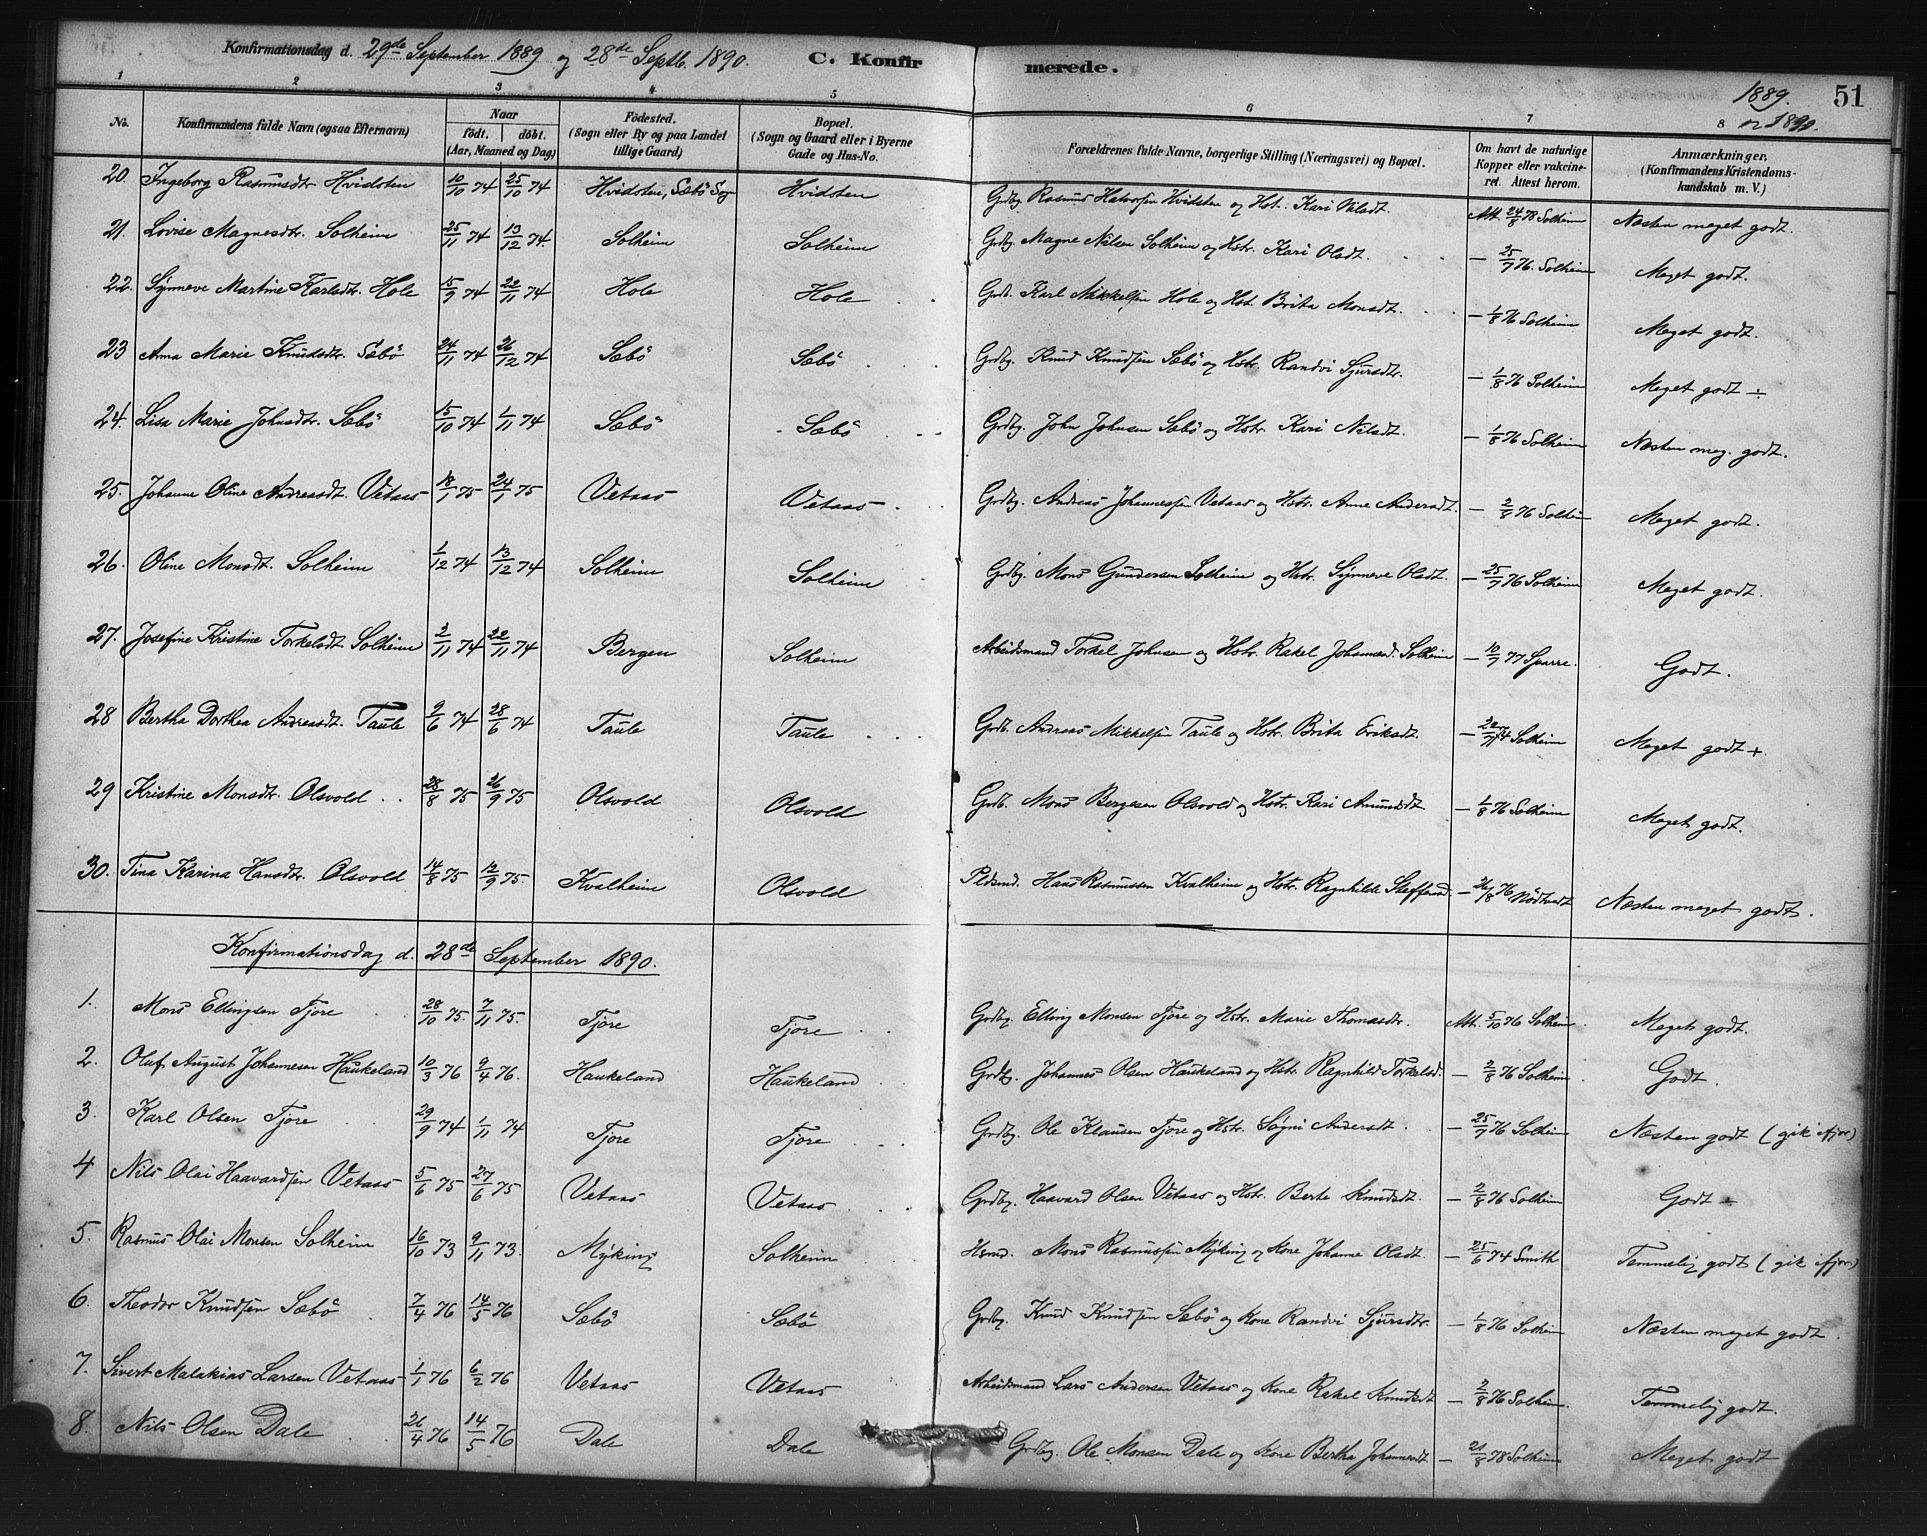 Konfirmationsdag d. 29de September 1889 og 28de Septb. 1890. C. Konfirmerede. 1889 og 1890. 51
1 2 3 4 5 6 7 8
No. Konfirmandens fulde Navn (ogsaa Efternavn) Naar födt. döbt. (Aar, Maaned og Dag) Födested. (Sogn eller By og paa Landet tillige Gaard) Bopæl. (Sogn og Gaard eller i Byerne Gade og Hus-No. Forældrenes fulde Navne, borgerlige Stilling (Næringsvei) og Bopæl. Om havt de naturlige Kopper eller vakcineret. Attest herom. Anmærkninger. (Konfirmandens Kristendomskundskab m. V.)
20. Ingeborg Rasmusdtr Hvidsten 10/10 74 25/10 74 Hvidsten, Sæbö Sog Hvidsten Grdbg. Rasmus Halvorsen Hvidsten og Hst. Kari Nilsdt. Att. 24/8 78 Solheim Næsten meget godt.
21. Lovise Magnesdtr. Solheim 25/11 74 13/12 74 Solheim Solheim Grdbg. Magne Nilsen Solheim og Hstr. Kari Olsdt. – 25/7 76. Solheim Meget godt.
22. Synneve Martine Karlsdtr. Hole 15/9 74 22/11 74 Hole Hole Grdb. Karl Mikkelsen Hole og Hst. Brita Monsdt. – 1/8 76 Solheim Meget godt.
23 Anna Marie Knudsdtr. Sæbö 24/11 74 26/12 74 Sæbö Sæbö Grdbg. Knud Knudsen Sæbö og Hstr. Randvi Sjursdtr. – 1/8 76 Solheim Meget godt ÷
24. Lisa Marie Johnsdtr. Sæbö 15/10 74 1/11 74 Sæbö Sæbö Grdbg. John Johnsen Sæbö og Hstr. Kari Nilsdt. – 1/8 76 Solheim Næsten meg. godt.
25. Johanne Oline Andreasdt. Vetaas 18/1 75 24/1 75 Vetaas Vetaas Grdbg. Andreas Johannessen Vetaas og Hstr. Anne Andersdt. – 2/8 76 Solheim Meget godt.
26. Oline Monsdt. Solheim 1/12 74 13/12 74 Solheim Solheim Grdbg. Mons Gundersen Solheim og Hstr. Synneve Olsdt. – 25/7 76 Solheim Meget godt.
27. Josefine Kristine Torkelsdt. Solheim 2/11 74 22/11 74 Bergen Solheim Arbeidsmand Torkel Johnsen og Hstr. Rakel Johannesd. Solheim – 10/7 77 Sparre. Godt.
28 Bertha Dorthea Andreasdt. Taule 2/6 74 28/6 74 Taule Taule Grdb. Andreas Mikkelsen Taule og Hstr. Brita Eriksdt. Solheim Meget godt +.
29 Kristine Monsdtr. Olsvold 28/8 75 26/9 75 Olsvold Olsvold Grdb. Mons Bergesen Olsvold og Hstr. Kari Amundsdt. – 1/8 76 Solheim Meget godt.
30. Tina Karina Hansdtr. Olsvold 14/8 75 12/9 75. Kvalheim Olsvold Pldsmd. Hans Rasmussen Kvalheim og Hstr. Ragnhilde Steffensd. – 26/8 76 Nödtvedt Næsten meget godt.
Konfirmationsdag d. 28de September 1890.
1. Mons Ellingsen Fjöre 28/10 75. 7/11 75. Fjöre Fjöre Grdbg. Elling Monsen Fjöre og Hstr. Marie Thomasdtr. Att. 5/10 76 Solheim. Meget godt.
2. Oluf August Johannesen Haukeland 10/3 76 9/4 76. Haukeland Haukeland Grdbg. Johannes Olsen Haukeland og Hstr. Ragnhild Torkelsd. – 2/8 76 Solheim. Godt.
3. Karl Olsen Fjöre 29/9 74 1/11 74 Fjöre Fjöre Grdbg. Ole Klausen Fjöre og Hstr. Søgni Andersdt. – 25/7 76 Solheim Næsten godt (gik ifjor)
4 Nils Olai Haavardsen Vetaas 5/6 75 27/6 75 Vetaas Vetaas Grdbg. Haavard Olsen Vetaas og Hstr. Berte Knudsdt. – 2/8 76 Solheim Godt ÷
5. Rasmus Olai Monsen Solheim 16/10 73 9/11 73. Myking Solheim Hsmd. Mons Rasmussen Myking og Kone Johanne Olsdt. – 25/6 74 Smith Temmelig godt (gik ifjor)
6. Theodor Knudsen Sæbö 7/4 76 14/5 76 Sæbö Sæbö Grdbg. Knud Knudsen Sæbö og Kone Randvi Sjursdtr. – 1/8 76 Solheim Næsten meget godt.
7. Sivert Malakias Larsen Vetaas 1/1 76 6/2 76 Vetaas Vetaas Arbeidsmand Lars Andersen Vetaas og Kone Rakel Knudsdt – 2/8 76 Solheim. Temmelig godt.
8. Nils Olsen Dale 26/4 76 14/5 76 Dale Dale Grdbg. Ole Monsen Dale og Kone Bertha Johannesdt – 21/8 78 Solheim Meget godt